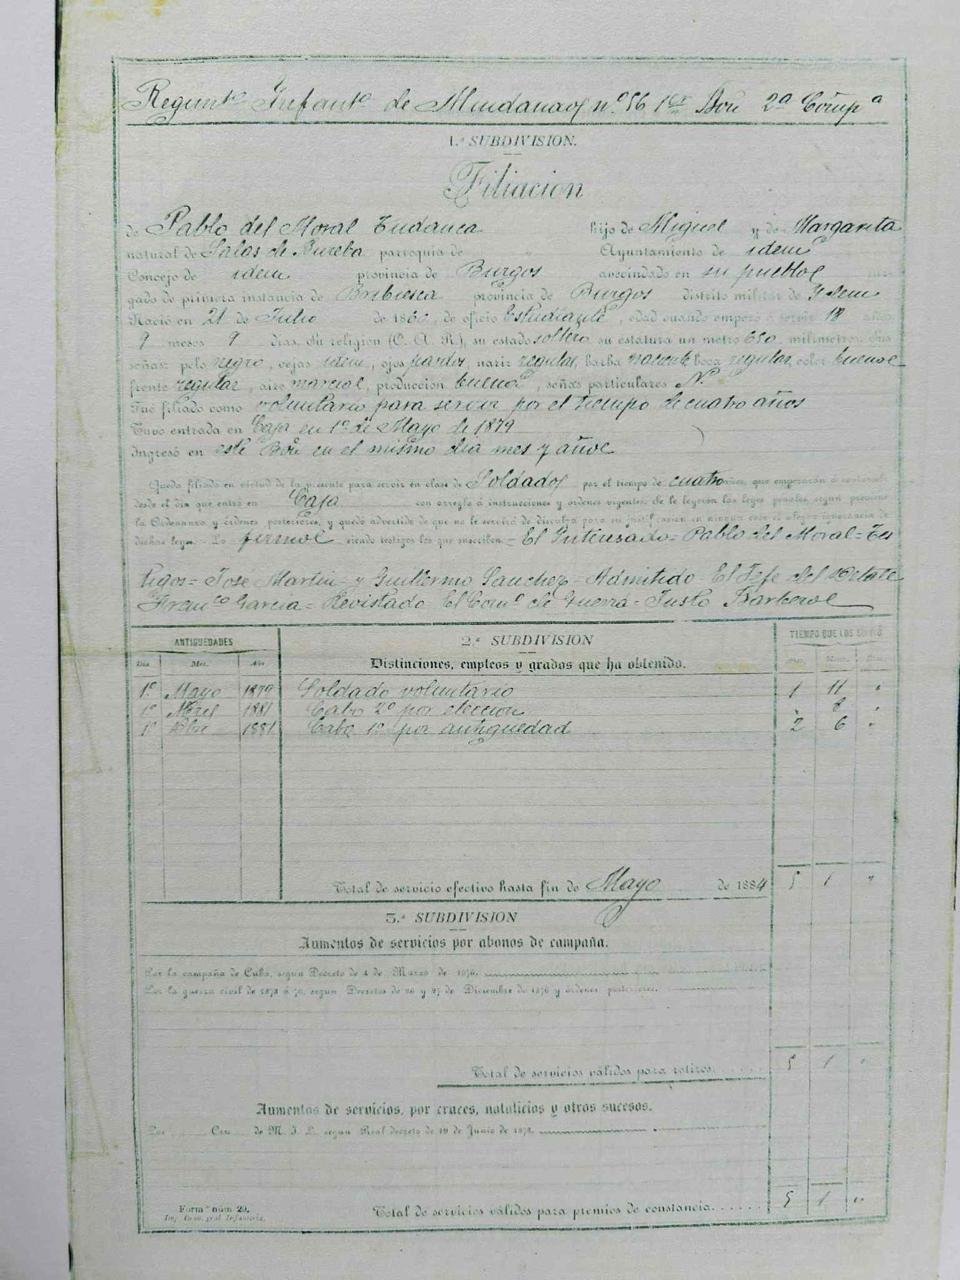 Regimto Infanta de Mindanao, nº 56, 1er Bon 2ª Compª
1.ª SUBDIVISION.
Filiacion
de Pablo del Moral Tudanca hijo de Miguel y de Margarita
natural de Salas de Bureba parroquia de " Ayuntamiento de idem
Concejo de idem provincia de Burgos avecindado en su pueblo, juz-
gado de primera instancia de Bribiesca provincia de Burgos distrito militar de Ydem
Nació en 21 de Julio de 1860, de oficio Estudiante, edad cuando empezó á servir 18 años
9 meses 9 dias. Su religion (C. A. R.), su estado soltero su estatura un metro 650 milimetros. Sus
señas: pelo negro, cejas idem, ojos pardos nariz regular, barba naciente boca regular, color bueno
frente regular, aire marcial, produccion buena, señas particulares N.
Fué filiado como voluntario para servir por el tiempo de cuatro años
Tuvo entrada en Caja en 1º de Mayo de 1879
Ingresó en este Bon en el mismo dia mes y año
Queda filiado en virtud de la presente para servir en clase de Soldado, por el tiempo de cuatro años, que empezarán á contarse
desde el dia que entró en Caja con arreglo á instrucciones y órdenes vigentes. Se le leyeron las leyes penales, segun previene
la Ordenanza y órdenes posteriores, y quedó advertido de que no le servirá de disculpa para su justificacion en ningun caso el alegar ignorancia de
dichas leyes. Lo firmó siendo testigos los que suscriben = El Interesado = Pablo del Moral = Tes
tigos = José Martin y Guillermo Sanchez = Admitido = El Jefe del Detall
Franco Garcia = Revistado El Como de Guerra = Justo Barbero
ANTIGUEDADES 2.ª SUBDIVISION TIEMPO QUE LOS SIRVIÓ
Dia. Mes. Año Distinciones, empleos y grados que ha obtenido. Años. Meses. Dias.
1º Mayo 1879 Soldado voluntario 1 11 "
1º Abril 1881 Cabo 2º por eleccion " 8 "
1º Dbre 1881 Cabo 1º por antiguedad 2 6 "
Total de servicio efectivo hasta fin de Mayo de 1884 5 1 "
3.ª SUBDIVISION
Aumentos de servicios por abonos de campaña.
Por la campaña de Cuba, segun Decreto de 4 de Marzo de 1876.
Por la guerra civil de 1873 á 76, segun Decretos de 26 y 27 de Diciembre de 1876 y órdenes posteriores.
Total de servicios válidos para retiros. 5 1 "
Aumentos de servicios, por cruces, natalicios y otros sucesos.
Por Cruz de M. I. L. segun Real decreto de 19 de Junio de
Form.º núm 29. Total de servicios válidos para premios de constancia. 5 1 "
Imp. Gral. Infantería.